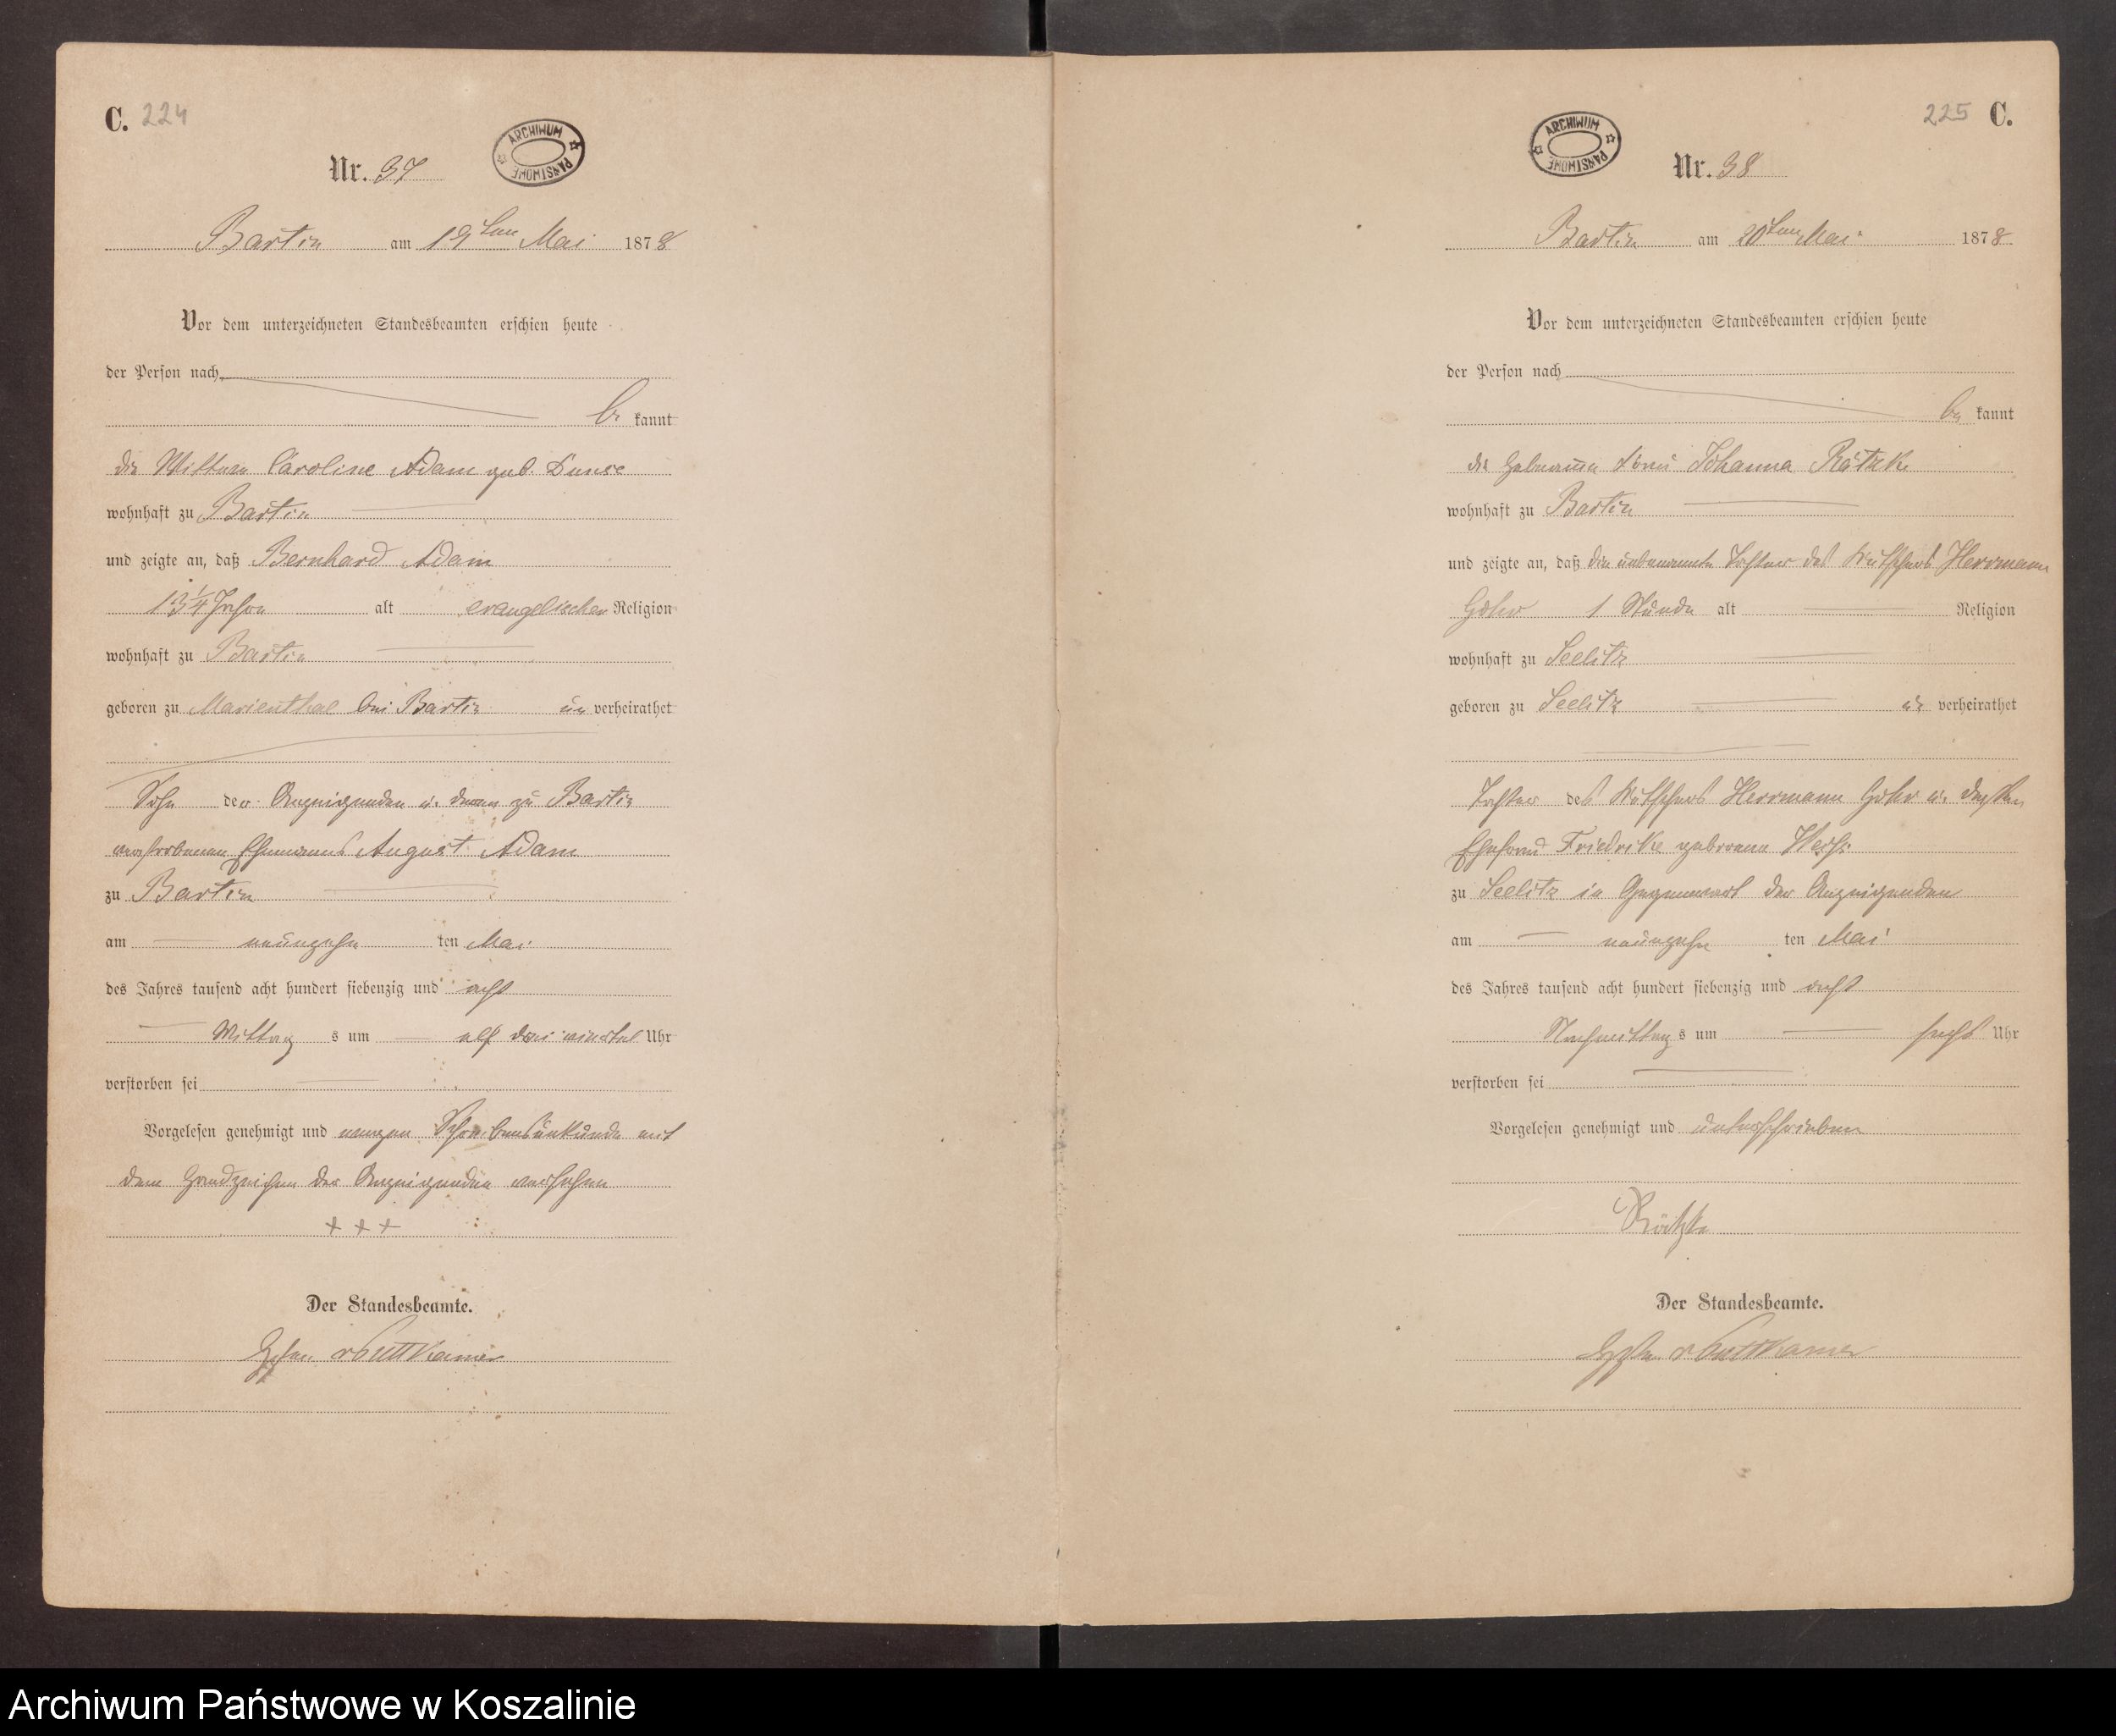 C. 224
ARCHIWUM PAŃSTWOWE
Nr. 37
Bartin am 19ten Mai 1878
Vor dem unterzeichneten Standesbeamten erschien heute
der Person nach
be kannt
die Wittwe Caroline Adam geb. Bunse
wohnhaft zu Bartin
und zeigte an, daß Bernhard Adam
13 1/4 Jahre alt evangelischer Religion
wohnhaft zu Bartin
geboren zu Marienthal bei Bartin un verheirathet
Sohn der Anzeigenden u. deren zu Bartin
verstorbenen Ehemanns August Adam
zu Bartin
am neunzehn ten Mai
des Jahres tausend acht hundert siebenzig und acht
Mittag s um elf drei viertel Uhr
verstorben sei
Vorgelesen genehmigt und wegen Schreibensunkunde mit
dem Handzeichen der Anzeigenden versehen
+ + +
Der Standesbeamte.
v Puttkamer
225 C.
ARCHIWUM PAŃSTWOWE
Nr. 38
Bartin am 20ten Mai 1878
Vor dem unterzeichneten Standesbeamten erschien heute
der Person nach
be kannt
die Hebamme Johanna Rätzke
wohnhaft zu Bartin
und zeigte an, daß die unbenannte Tochter des Kutschers Herrmann
Gohr 1 Stunde alt Religion
wohnhaft zu Seelitz
geboren zu Seelitz un verheirathet
Tochter des Kutschers Herrmann Gohr u. dessen
Ehefrau Friedrike geborene
zu Seelitz in Gegenwart der Anzeigenden
am neunzehn ten Mai
des Jahres tausend acht hundert siebenzig und acht
Nachmittag s um sechs Uhr
verstorben sei
Vorgelesen genehmigt und unterschrieben
Rätzke
Der Standesbeamte.
v Puttkamer
Archiwum Państwowe w Koszalinie